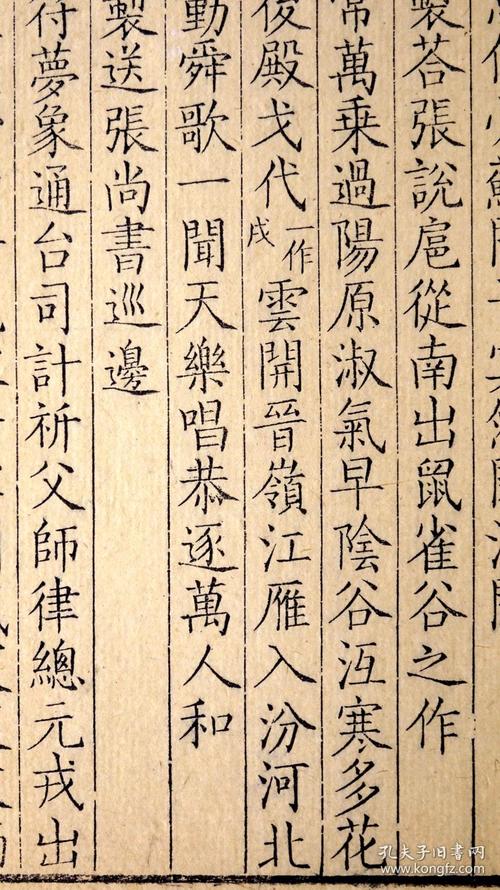 製荅張說扈從南出鼠雀谷之作
常萬乗過陽原淑氣早陰谷沍寒多花
殿戈代一作戍雲開晉嶺江雁入汾河北
動舜歌一聞天樂唱恭逐萬人和
製送張尚書巡邊
符夢象通台司計祈父師律總元戎出
孔夫子旧書网
www.kongfz.com